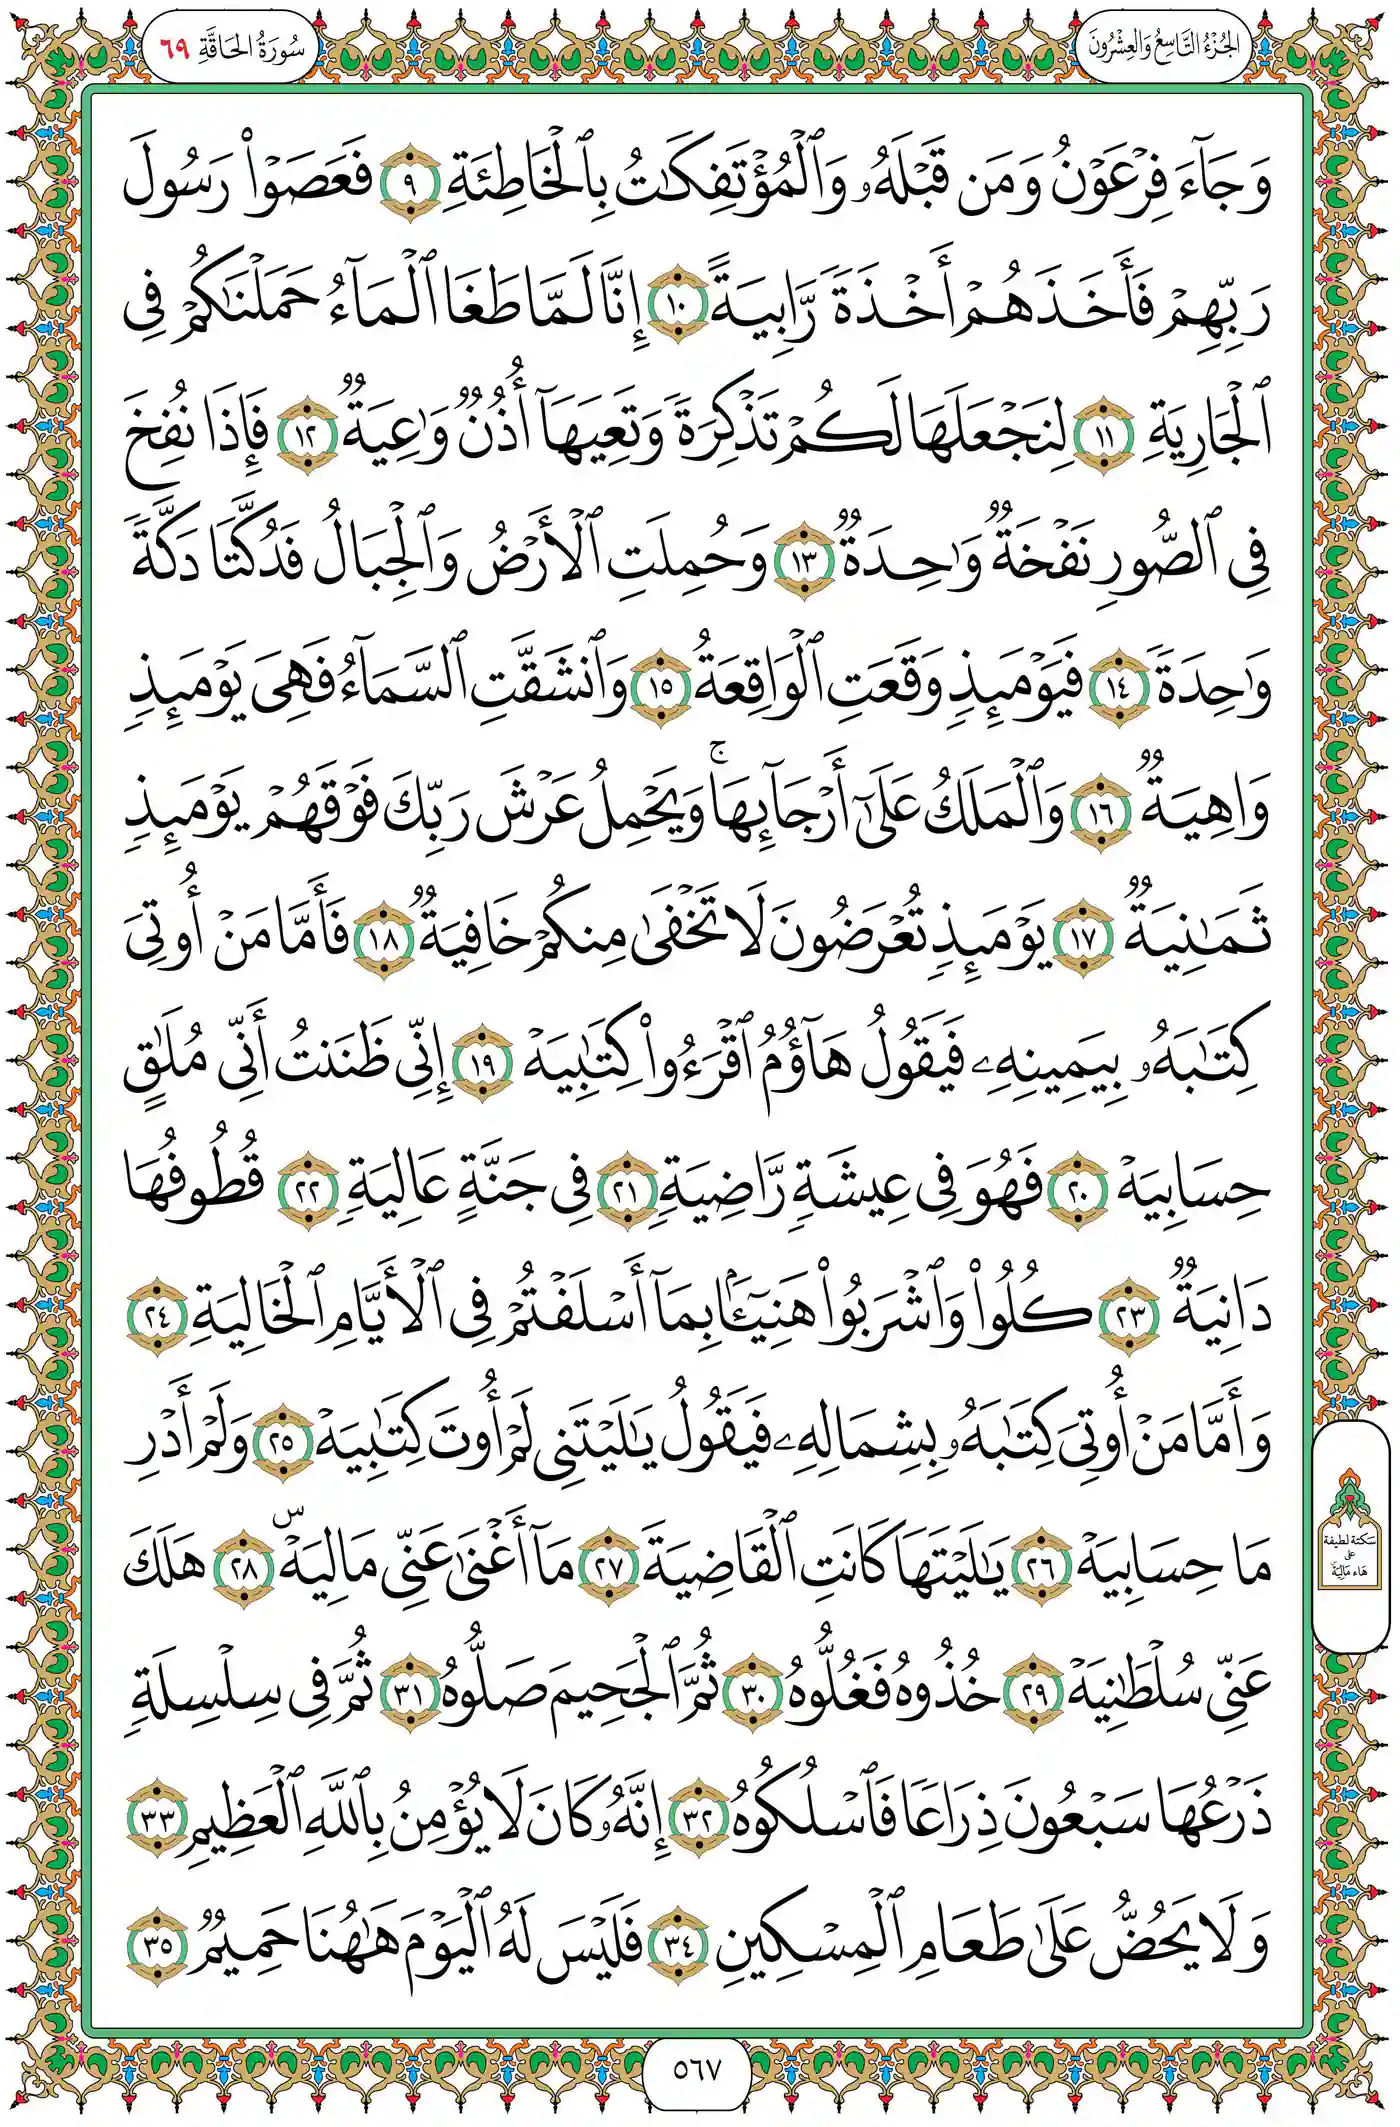 الجُزْءُ التَّاسِعُ وَالعِشْرُونَ
سُورَةُ الحَاقَّةِ ٦٩
وَجَآءَ فِرْعَوْنُ وَمَن قَبْلَهُۥ وَٱلْمُؤْتَفِكَٰتُ بِٱلْخَاطِئَةِ ٩ فَعَصَوْا۟ رَسُولَ
رَبِّهِمْ فَأَخَذَهُمْ أَخْذَةً رَّابِيَةً ١٠ إِنَّا لَمَّا طَغَا ٱلْمَآءُ حَمَلْنَٰكُمْ فِى
ٱلْجَارِيَةِ ١١ لِنَجْعَلَهَا لَكُمْ تَذْكِرَةً وَتَعِيَهَآ أُذُنٌ وَٰعِيَةٌ ١٢ فَإِذَا نُفِخَ
فِى ٱلصُّورِ نَفْخَةٌ وَٰحِدَةٌ ١٣ وَحُمِلَتِ ٱلْأَرْضُ وَٱلْجِبَالُ فَدُكَّتَا دَكَّةً
وَٰحِدَةً ١٤ فَيَوْمَئِذٍ وَقَعَتِ ٱلْوَاقِعَةُ ١٥ وَٱنشَقَّتِ ٱلسَّمَآءُ فَهِىَ يَوْمَئِذٍ
وَاهِيَةٌ ١٦ وَٱلْمَلَكُ عَلَىٰٓ أَرْجَآئِهَا ۚ وَيَحْمِلُ عَرْشَ رَبِّكَ فَوْقَهُمْ يَوْمَئِذٍ
ثَمَٰنِيَةٌ ١٧ يَوْمَئِذٍ تُعْرَضُونَ لَا تَخْفَىٰ مِنكُمْ خَافِيَةٌ ١٨ فَأَمَّا مَنْ أُوتِىَ
كِتَٰبَهُۥ بِيَمِينِهِۦ فَيَقُولُ هَآؤُمُ ٱقْرَءُوا۟ كِتَٰبِيَهْ ١٩ إِنِّى ظَنَنتُ أَنِّى مُلَٰقٍ
حِسَابِيَهْ ٢٠ فَهُوَ فِى عِيشَةٍ رَّاضِيَةٍ ٢١ فِى جَنَّةٍ عَالِيَةٍ ٢٢ قُطُوفُهَا
دَانِيَةٌ ٢٣ كُلُوا۟ وَٱشْرَبُوا۟ هَنِيٓـًٔۢا بِمَآ أَسْلَفْتُمْ فِى ٱلْأَيَّامِ ٱلْخَالِيَةِ ٢٤
وَأَمَّا مَنْ أُوتِىَ كِتَٰبَهُۥ بِشِمَالِهِۦ فَيَقُولُ يَٰلَيْتَنِى لَمْ أُوتَ كِتَٰبِيَهْ ٢٥ وَلَمْ أَدْرِ
مَا حِسَابِيَهْ ٢٦ يَٰلَيْتَهَا كَانَتِ ٱلْقَاضِيَةَ ٢٧ مَآ أَغْنَىٰ عَنِّى مَالِيَهْ ۜ ٢٨ هَلَكَ
عَنِّى سُلْطَٰنِيَهْ ٢٩ خُذُوهُ فَغُلُّوهُ ٣٠ ثُمَّ ٱلْجَحِيمَ صَلُّوهُ ٣١ ثُمَّ فِى سِلْسِلَةٍ
ذَرْعُهَا سَبْعُونَ ذِرَاعًا فَٱسْلُكُوهُ ٣٢ إِنَّهُۥ كَانَ لَا يُؤْمِنُ بِٱللَّهِ ٱلْعَظِيمِ ٣٣
وَلَا يَحُضُّ عَلَىٰ طَعَامِ ٱلْمِسْكِينِ ٣٤ فَلَيْسَ لَهُ ٱلْيَوْمَ هَٰهُنَا حَمِيمٌ ٣٥
سَكتة لطيفة
على
هَاء مَالِيَهْ
٥٦٧